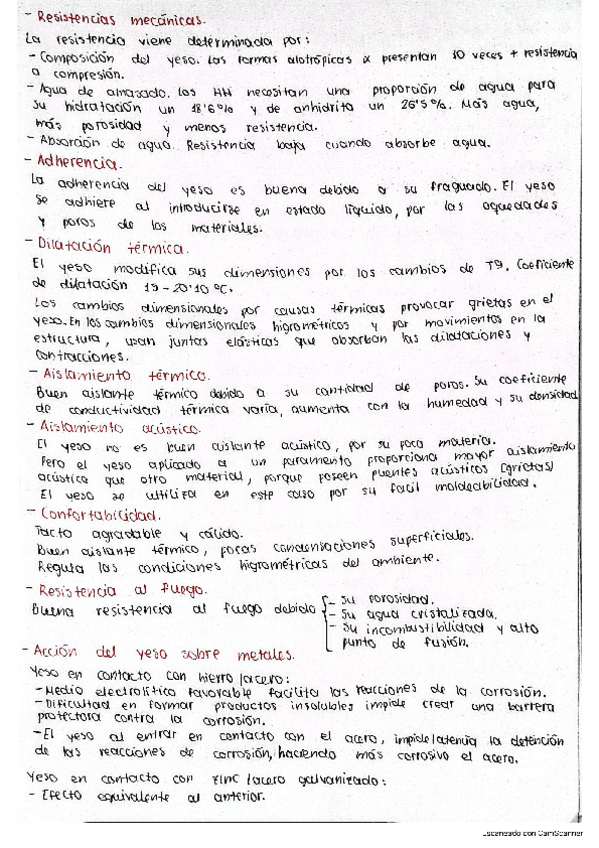 - Resistencias mecánicas.
La resistencia viene determinada por:
- Composición del yeso. Las formas alotrópicas α presentan 10 veces + resistencia
a compresión.
- Agua de amasado. Los HH necesitan una proporción de agua para
su hidratación un 18'6% y de anhidrita un 26'5%. Más agua,
más porosidad y menos resistencia.
- Absorción de agua. Resistencia baja cuando absorbe agua.
- Adherencia.
La adherencia del yeso es buena debido a su fraguado. El yeso
se adhiere al introducirse en estado líquido, por las oquedades
y poros de los materiales.
- Dilatación térmica.
El yeso modifica sus dimensiones por los cambios de Tª. Coeficiente
de dilatación 19-20·10 ºC.
Los cambios dimensionales por causas térmicas provocar grietas en el
yeso. En los cambios dimensionales higrométricos y por movimientos en la
estructura, usan juntas elásticas que absorban las dilataciones y
contracciones.
- Aislamiento térmico.
Buen aislante térmico debido a su cantidad de poros. Su coeficiente
de conductividad térmica varía, aumenta con la humedad y su densidad
- Aislamiento acústico.
El yeso no es buen aislante acústico, por su poca materia.
Pero el yeso aplicado a un paramento proporciona mayor aislamiento
acústico que otro material, porque poseen puentes acústicos (grietas)
El yeso se utiliza en este caso por su facil moldeabilidad.
- Confortabilidad.
Tacto agradable y cálido.
Buen aislante térmico, pocas condensaciones superficiales.
Regula las condiciones higrométricas del ambiente.
- Resistencia al fuego.
Buena resistencia al fuego debido
- Su porosidad.
- Su agua cristalizada.
- Su incombustibilidad y alto
punto de fusión.
- Acción del yeso sobre metales.
Yeso en contacto con hierro/acero:
- Medio electrolítico favorable facilita las reacciones de la corrosión.
- Dificultad en formar productos insolubles impide crear una barrera
protectora contra la corrosión.
- El yeso al entrar en contacto con el acero, impide/atenúa la detención
de las reacciones de corrosión, haciendo más corrosivo el acero.
Yeso en contacto con zinc/acero galvanizado:
- Efecto equivalente al anterior.
Escaneado con CamScanner